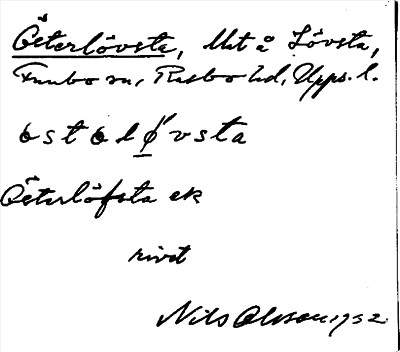 Österlövsta, Utt å Lövsta,
Funbo sn, Rasbo hd, Upps. l.
ostolǿvsta
Österlöfsta ek
rivet
Nils Olsson 1952